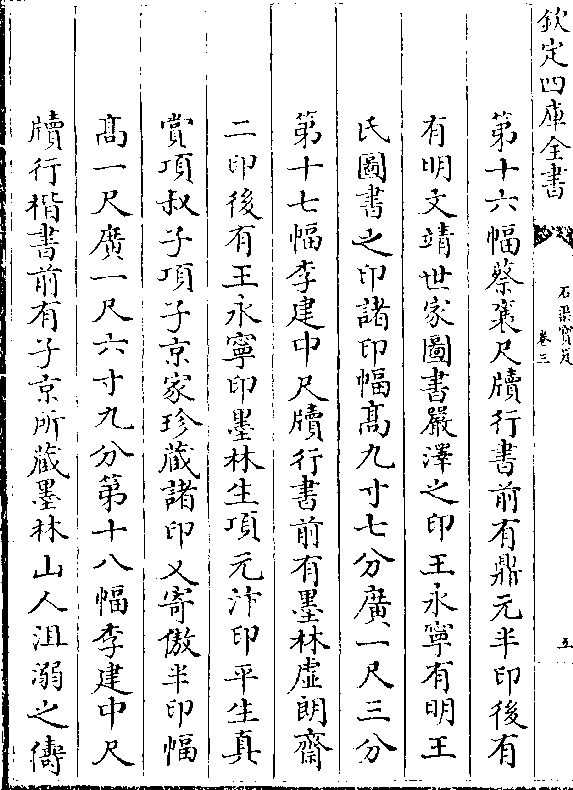 欽定四庫全書
石渠寶笈
卷三
五
第十六幅蔡襄尺牘行書前有鼎元半印後有
有明文靖世家圖書嚴澤之印王永寧有明王
氏圖書之印諸印幅髙九寸七分廣一尺三分
第十七幅李建中尺牘行書前有墨林虛朗齋
二印後有王永寧印墨林生項元汴印平生真
賞項叔子項子京家珍藏諸印又寄傲半印幅
髙一尺廣一尺六寸九分第十八幅李建中尺
牘行楷書前有子京所藏墨林山人沮溺之儔